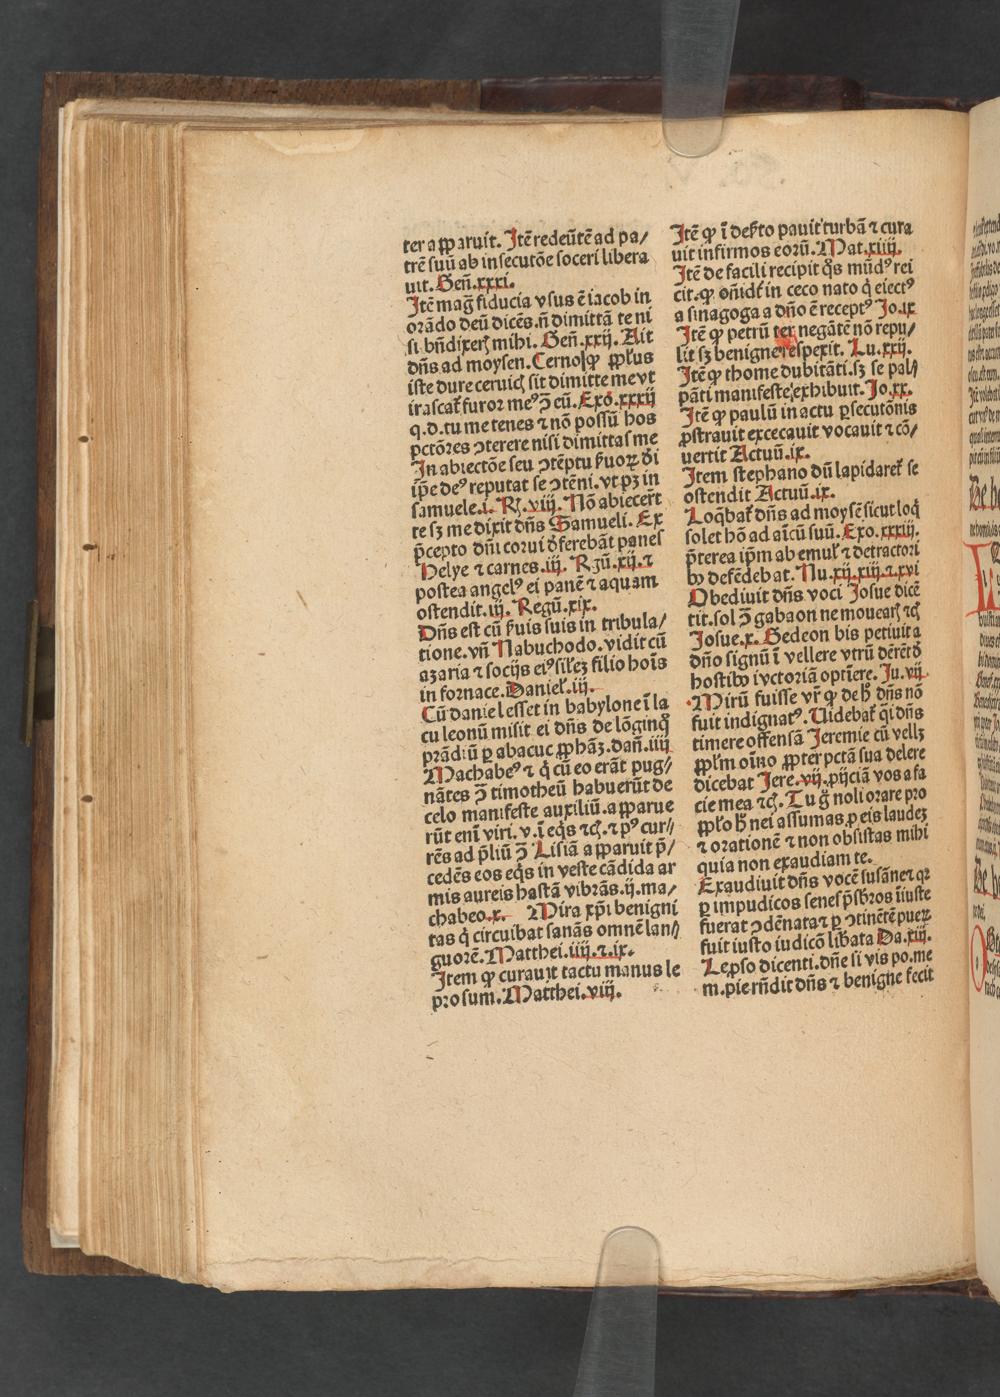 ter apparuit. Itē redeūtē ad pa/
trē suū ab insecutōe soceri libera
uit. Geñ.xxxi.
Itē mag̃ fiducia vsus ē iacob in
orādo deū dicēs.ñ dimittā te ni
si bñdixerꝭ mihi. Geñ.xxij. Ait
dñs ad moysen. Cerno ꝙ ppƚus
iste dure ceruicꝭ sit dimitte me vt
irascat᷑ furor meꝰ ↄ̄ eū. Exō.xxxij
q.d.tu me tenes ⁊ nō possū hos
pctōres ↄterere nisi dimittas me
In abiectōe seu ↄtēptu ẜuoꝝ d̕i
ip̄e deꝰ reputat se ↄtēni. vt pꝫ in
samuele.i. Rꝭ.viij. Nō abiecer̄t
te sꝫ me dixit dñs Samueli. Ex
p̄cepto dñi corui d̕ferebāt panes
Helye ⁊ carnes.iij. Rgū.xij.⁊
postea angelꝰ ei panē ⁊ aquam
ostendit.iij. Regū.xix.
Dñs est cū ẜuis suis in tribula/
tione.vñ Nabuchodo.vidit cū
azaria ⁊ socijs eiꝰ siƚeꝫ filio hoīs
in fornace. Danieƚ.iij.
Cū daniel esset in babylone ī la
cu leonū misit ei dñs de lōginqͦ
prādiū ꝑ abacuc ꝓphāꝫ.dañ.iiij
Machabeꝰ ⁊ q̇ cū eo erāt pug⸗
nātes ↄ̄ timotheū habuerūt de
celo manifeste auxiliū.apparue
rūt enī viri.v.ī eq̇s ⁊cꝭ.⁊ pꝰ cur⸗
rēs ad p̄liū ↄ̄ Lisiā apparuit p̄/
cedēs eos eq̇s in veste cādida ar
mis aureis hastā vibrās.ij.ma/
chabeo.x. Mira xp̄i benigni
tas q̇ circuibat sanās omnē lan⸗
guorē. Matthei.iiij.⁊.ix.
Item ꝙ curauit tactu manus le
prosum. Matthei.viij.
Itē ꝙ ī deẜto pauit turbā ⁊ cura
uit infirmos eorū. Mat.xiiij.
Itē de facili recipit q̇s mūdꝰ rei
cit.ꝙ oñidt̄ in ceco nato q̇ eiectꝰ
a sinagoga a dño ē receptꝰ Jo.ix
Itē ꝙ petrū ter negātē nō repu/
lit sꝫ benigne respexit. Lu.xxij.
Itē ꝙ thome dubitāti.sꝫ se pal⸗
pāti manifeste exhibuit. Jo.xx.
Itē ꝙ paulū in actu ꝑsecutōnis
ꝓstrauit excecauit vocauit ⁊ cō/
uertit Actuū.ix.
Item stephano dū lapidaret᷑ se
ostendit Actuū.ix.
Loq̄bat᷑ dñs ad moysē sicut loq̇
solet hō ad aīcū suū. Exo.xxxiij.
p̄terea ip̄m ab emuƚ ⁊ detractori
bꝰ defēdebat. Nu.xij.xiij.⁊.xvi
Obediuit dñs voci Josue dicē
tit.sol ↄ̄ gabaon ne mouearꝭ ⁊cꝭ
Josue.x. Gedeon bis petiuit a
dño signū ī vellere vtrū dēret d̕
hostibꝰ ivctoriā optīere. Ju.vij.
Mirū fuisse vr̄ ꝙ de hͦ dñs nō
fuit indignatꝰ. Uidebat᷑ q̇ dñs
timere offensā Jeremie cū velꝫ
ppƚm oīno ꝓpter pctā sua delere
dicebat Jere.vij.ꝓijciā vos a fa
cie mea ⁊cꝭ. Tu g̊ noli orare pro
ppƚo h̕ nei assumas ꝓ eis laudeꝫ
⁊ orationē ⁊ non obsistas mihi
quia non exaudiam te.
Exaudiuit dñs vocē susāne ⁊ qꝛ
ꝑ impudicos senes p̄sbros iiuste
fuerat ↄdēnata ⁊ ꝑ ↄtinētē pueꝝ
fuit iusto iudicō liƀata Da.xiij.
Leproso dicenti.dñe si vis po.me
m.pie rñdit dñs ⁊ benigne fecit